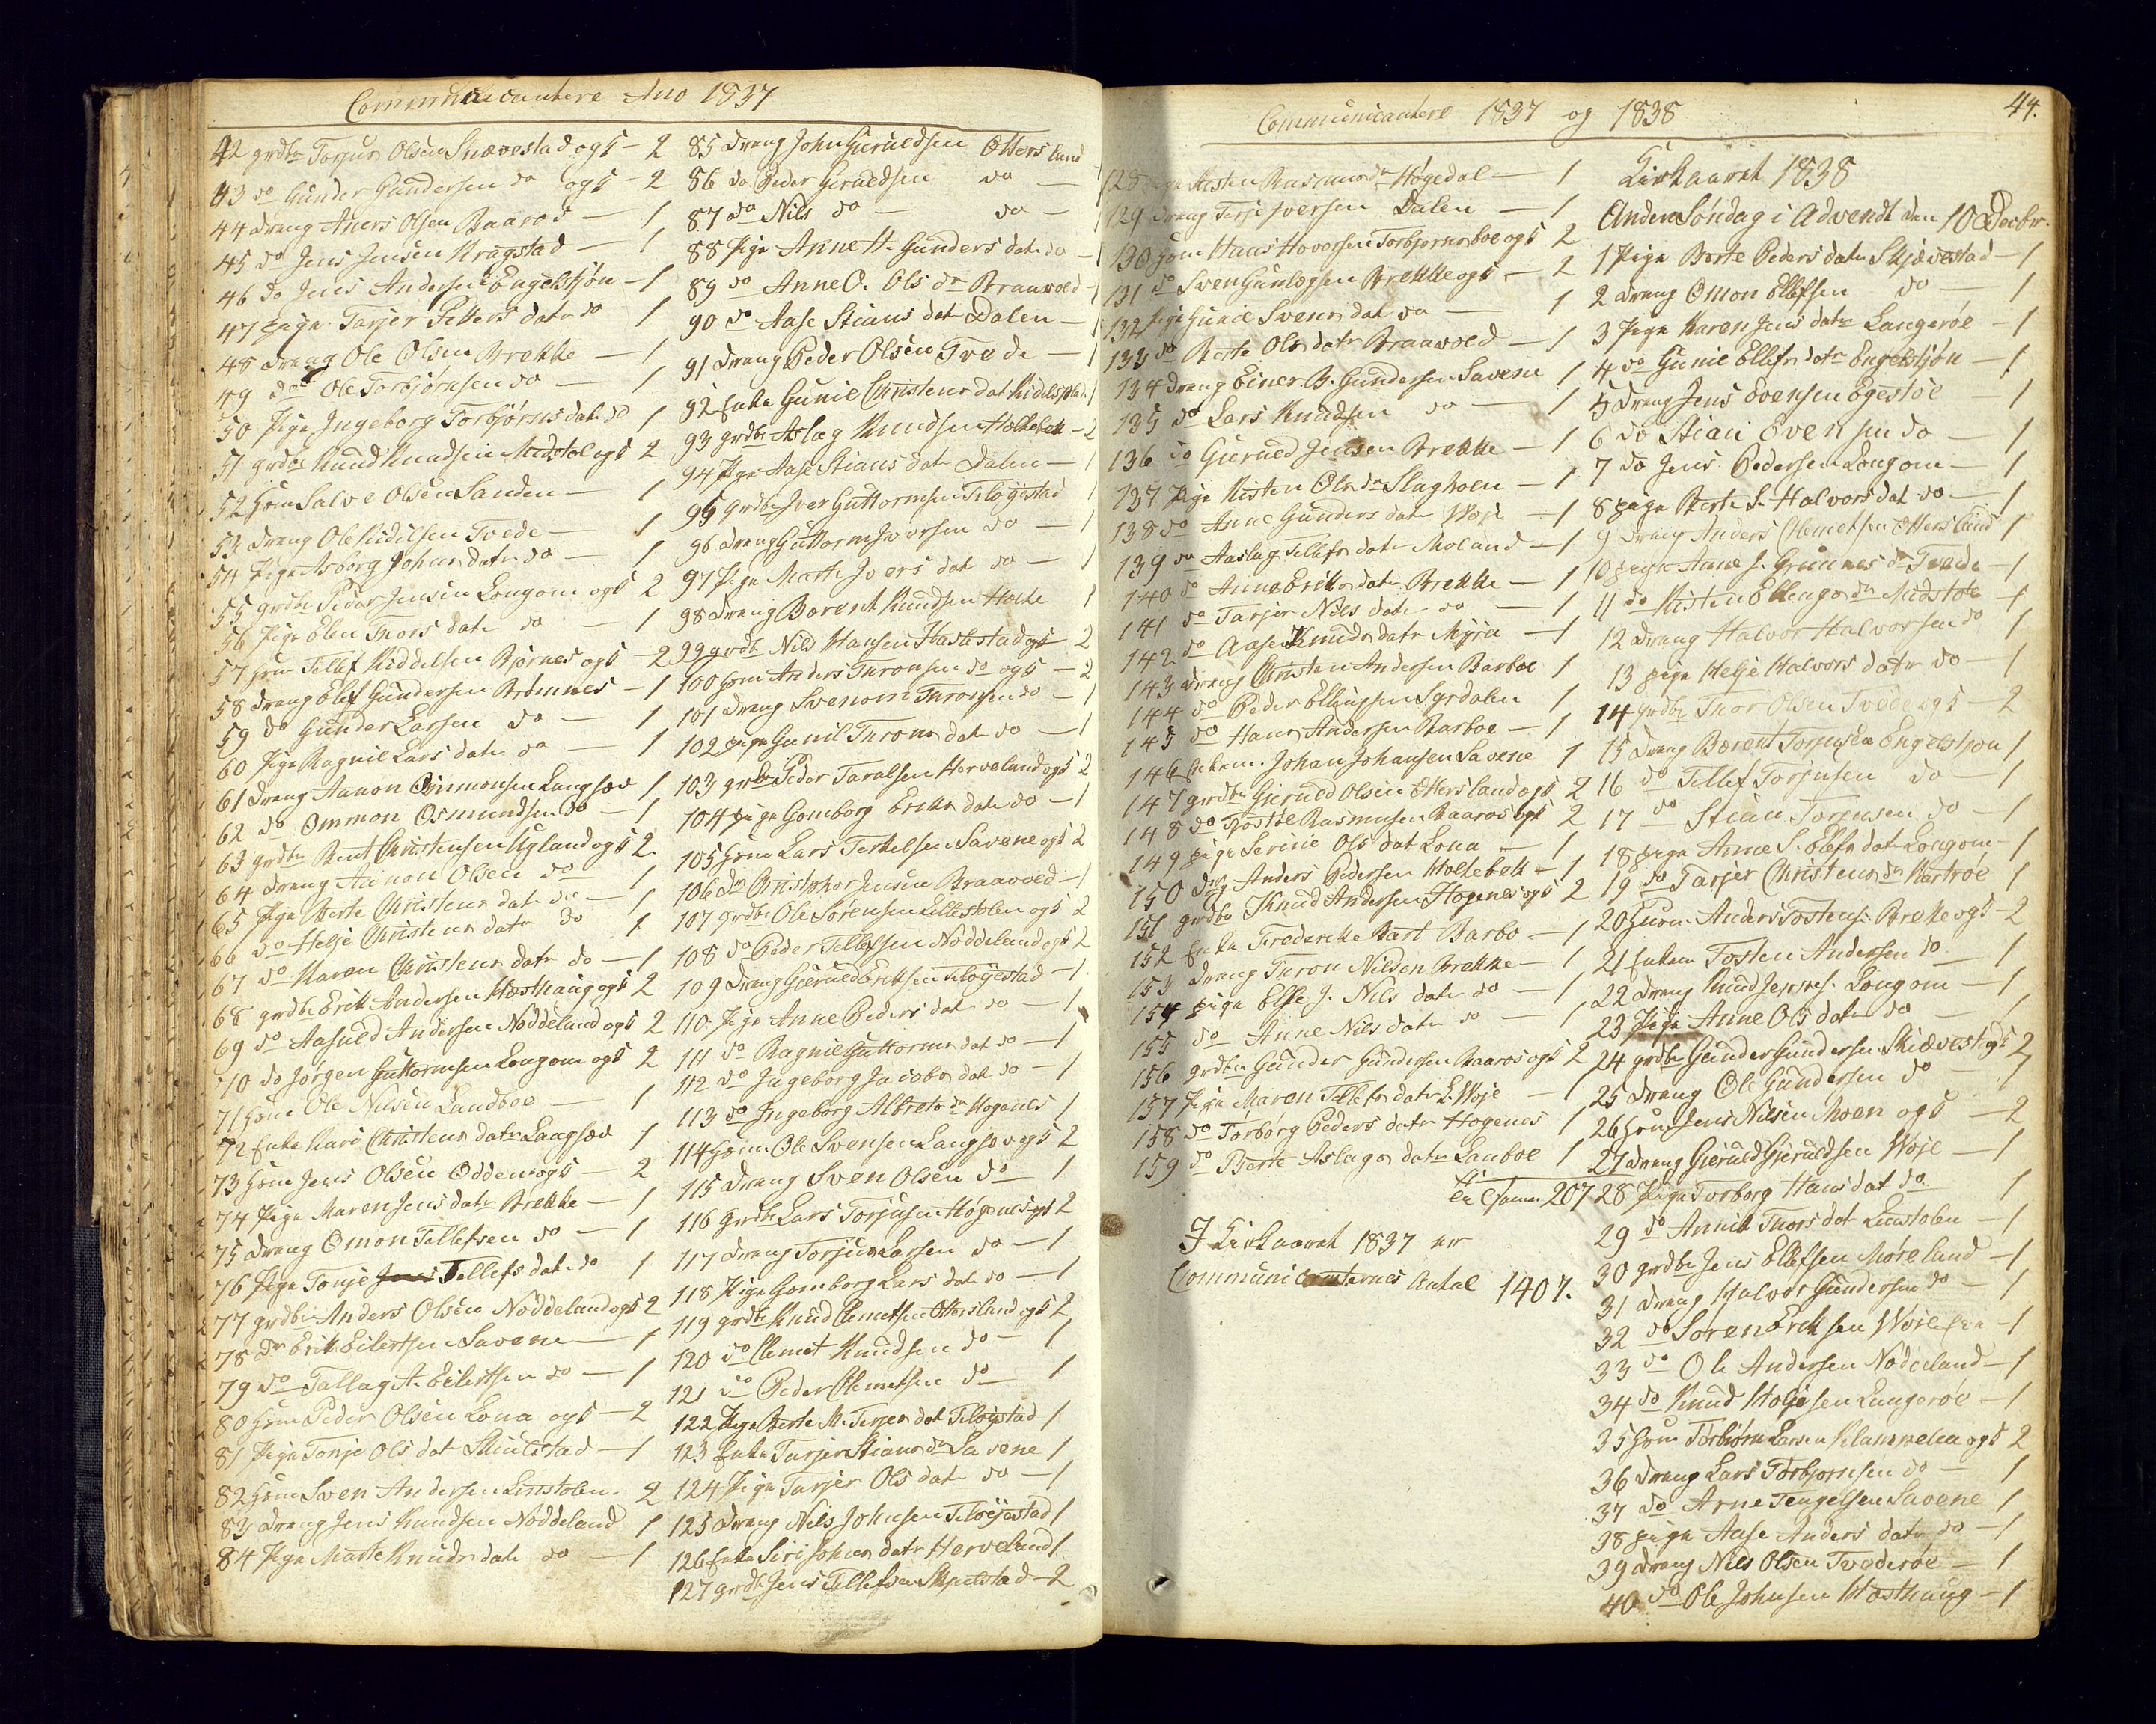 Communicantere Ano 1837
42 grdbr Torjus Olsen Skiævestad ogs - 2
43 do Gunder Gundersen do ogs - 2
44 Dreng Aners Olsen Baaros - 1
45 do Jens Jensen Kragstad - 1
46 do Jens Andersen Engelstjøn - 1
47 Pige Tarjer Tellefs datr do 1
48 Dreng Ole Olsen Brekke - 1
49 do Ole Torbjørnsen do - 1
50 Pige Ingeborg Torbjørns datr do 1
51 grdbr Knud Knudsen Midstøl ogs 2
52 Huusm Salve Olsen Sanden - 1
53 Dreng Ole Kidilsen Tvede - 1
54 Pige Asborg Johans datr do - 1
55 grdbr Peder Jensen Longom ogs 2
56 Pige Elen Thors datr do - 1
57 Huusm Tellef Kiddelsen Bjørnes ogs - 2
58 Dreng Elef Gundersen Brømnes - 1
59 do Gunder Larsen do - 1
60 Pige Ragnil Lars datr do - 1
61 Dreng Aanon Ommonsen Langsæe 1
62 do Ommon Osmundsen do - 1
63 grdbr Bent Christensen Ugland ogs 2
64 Dreng Aanon Olsen do - 1
65 Pige Berte Christens dat do - 1
66 do Helje Christens datr do 1
67 do Karen Christens datr do - 1
68 grdbr Erik Andersen Hæsthaug ogs 2
69 do Aasuld Andersen Nøddeland ogs 2
70 do Jørgen Guttormsen Longom ogs 2
71 Huusm Ole Nilsen Landboe - 1
72 Enke Kari Christens datr Langsæe 1
73 Huusm Jens Olsen Odden ogs - 2
74 Pige Maren Jens datr Brekke - 1
75 Dreng Omon Tellefsen do - 1
76 Pige Tonje Tellefs datr do 1
77 grdbr Anders Olsen Nøddeland ogs 2
78 Dr Erik Eilertsen Savene - 1
79 do Tallag A. Eilertsen do - 1
80 Huusm Peder Olsen Lona ogs - 2
81 Pige Tonje Ols dat Skiulstad - 1
82 Huusm Sven Andersen Linstolen - 2
83 Dreng Jens Knudsen Nøddeland 1
84 Pige Marte Knuds datr do - 1
85 Dreng John Gieruldsen Ottersland
86 do Peder Gieruldsen do -
87 do Nils do - do -
88 Pige Anne H. Gunders datr do - 1
89 do Anne O. Ols dr Braavold - 1
90 do Aase Stians dat Dalen - 1
91 Dreng Peder Olsen Tvede - 1
92 Enke Gunil Christens dat 1
93 grdbr Aslag Knudsen Holtebek - 2
94 Pige Aase Stians datr Dalen - 1
95 grdbr Iver Guttormsen Tløgstad 1
96 Dreng Guttorm Iversen do - 1
97 Pige Marte Ivers dat do - 1
98 Dreng Berent Knudsen Holte 1
99 grdbr Nils Hansen Hasbstad ogs - 2
100 Huusm Anders Thronsen do ogs - 2
101 Dreng Svenom Thronsen do - 1
102 Pige Gunil Throns dat do - 1
103 grdbr Peder Taralsen Herveland ogs 2
104 Pige Gomborg Eriks datr do - 1
105 Huusm Lars Terkelsen Savene ogs 2
106 Dr Cristopher Jensen Braavold - 1
107 grdbr Ole Sørensen Lillestolen ogs 2
108 do Peder Tellefsen Nøddeland ogs 2
109 Dreng Gieruld Eriksen Tløgestad - 1
110 Pige Anne Peders dat do - 1
111 do Ragnil Guttorms dat do - 1
112 do Ingeborg Jacobs dat do - 1
113 do Ingeborg Albrets dr Hogenes 1
114 Huusm Ole Svensen Langsæe ogs 2
115 Dreng Sven Olsen do - 1
116 grdbr Lars Torjusen Høgenes ogs 2
117 Dreng Torjus Larsen do - 1
118 Pige Gomborg Lars dat do - 1
119 grdbr Knud Clemetsen Ottersland ogs 2
120 do Clemet Knudsen do - 1
121 do Peder Clemetsen do - 1
122 Pige Berte M. Terjes dat Tløgstad 1
123 Enke Tarjer Stians dr Savene 1
124 Pige Tarjer Ols datr do - 1
125 Dreng Nils Johnsen Tløgestad 1
126 Enke Siri Johans datr Herveland 1
127 grdbr Jens Tellefsen Skjulstad - 2
Communicantere 1837 og 1838
44.
128 Pige Kisten Rasmus dr Høgedal - 1
129 Dreng Terje Iversen Dalen - 1
130 Huusm Hans Hoversen Torbjørnsboe ogs 2
131 do Sven Gunlegsen Brekke ogs - 2
132 Pige Gunil Svens dat do - 1
133 do Berte Ols datr Braavold - 1
134 Dreng Einer B. Gundersen Savene 1
135 do Lars Knudsen do - 1
136 do Gieruld Jensen Brekke - 1
137 Pige Kisten Ols dr Slagholen - 1
138 do Anne Gunders datr Woje - 1
139 do Aaslag Tellefs datr Moland - 1
140 do Anne Eriks datr Brekke - 1
141 do Tarjer Nils datr do - 1
142 do Aasen Knuds datr Myra - 1
143 Dreng Christen Andersen Barboe 1
144 do Peder Ellingsen Syrdalen 1
145 do Hans Andersen Barboe - 1
146 Enkem. Johan Johansen Savene 1
147 grdbr Gieruld Olsen Ottersland ogs 2
148 do Tostøl Rasmusen Baaros ogs 2
149 Pige Serine Ols dat Lona - 1
150 Drg Anders Pedersen Holtebek - 1
151 grdbr Knud Andersen Hogenes ogs 2
152 Enke Frederikke Bart Barbo - 1
153 Dreng Thron Nilsen Brekke - 1
154 Pige Else J. Nils datr do - 1
155 do Anne Nils datr do - 1
156 grdbr Gunder Gundersen Baaros ogs 2
157 Pige Maren Tellefs datr L. Woje - 1
158 do Torborg Peders datr Hogenes 1
159 do Berte Aslags datr Lanboe 1
207
I Kirkaaret 1837 er
Communicanternes Antal 1407.
Kirkaaret 1838
Anden Søndag i Advendt den 10 Decbr.
1 Pige Berte Peders datr Skjævestad - 1
2 Dreng Omon Ellefsen do - 1
3 Pige Karen Jens datr Langerøe - 1
4 do Gunil Ellefs datr Engelstjøn - 1
5 Dreng Jens Evensen Egestøe 1
6 do Stian Evensen do - 1
7 do Jens Pedersen Longom - 1
8 Pige Berte S. Halvors dat do - 1
9 Dreng Anders Clemetsen Ottersland 1
10 Pige Anne J. Grunnes dr Tvede - 1
11 do Kisten Ellings dr Midstøl - 1
12 Dreng Halvor Halvorsen do 1
13 Pige Helje Halvors datr do - 1
14 grdbr Thor Olsen Tvede ogs - 2
15 Dreng Berent Torjusen Engelstjøn 1
16 do Tellef Torjusen do - 1
17 do Stian Torjusen do - 1
18 Pige Anne S. Elefs dat Longom - 1
19 do Tarjer Christens dr Hartrøe 1
20 Huusm. Anders Tostens. Breke ogs - 2
21 Enkem Tosten Andersen do 1
22 Dreng Knud Jeppes. Longom - 1
23 Pige Anne Ols datr do - 1
24 grdbr Gunder Gundersen Skiævest. ogs 2
25 Dreng Ole Gundersen do - 1
26 Huusm Jens Nilsen Moen ogs - 2
27 Dreng Gieruld Gieruldsen Woje - 1
28 Pige Torborg Hans dat do 1
29 do Annik Thors dat Linstolen - 1
30 grdbr Jens Ellefsen Møreland - 1
31 Dreng Halvor Gundersen do - 1
32 do Soren Eriksen Woje - 1
33 do Ole Andersen Nodeland - 1
34 do Knud Holjesen Langerøe - 1
35 Huusm Torbiørn Larsen Klammelia ogs 2
36 Dreng Lars Torbjornsen do - 1
37 do Arne Tengelsen Savene 1
38 Pige Aase Anders datr do - 1
39 Dreng Nils Olsen Tvederøe - 1
40 do Ole Johnsen Hæsthaug - 1